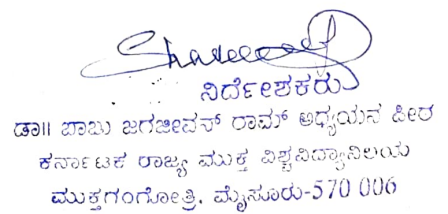 ನಿರ್ದೇಶಕರು
ಡಾ॥ ಬಾಬು ಜಗಜೀವನ್ ರಾಮ್ ಅಧ್ಯಯನ ಪೀಠ
ಕರ್ನಾಟಕ ರಾಜ್ಯ ಮುಕ್ತ ವಿಶ್ವವಿದ್ಯಾನಿಲಯ
ಮುಕ್ತಗಂಗೋತ್ರಿ, ಮೈಸೂರು-570 006